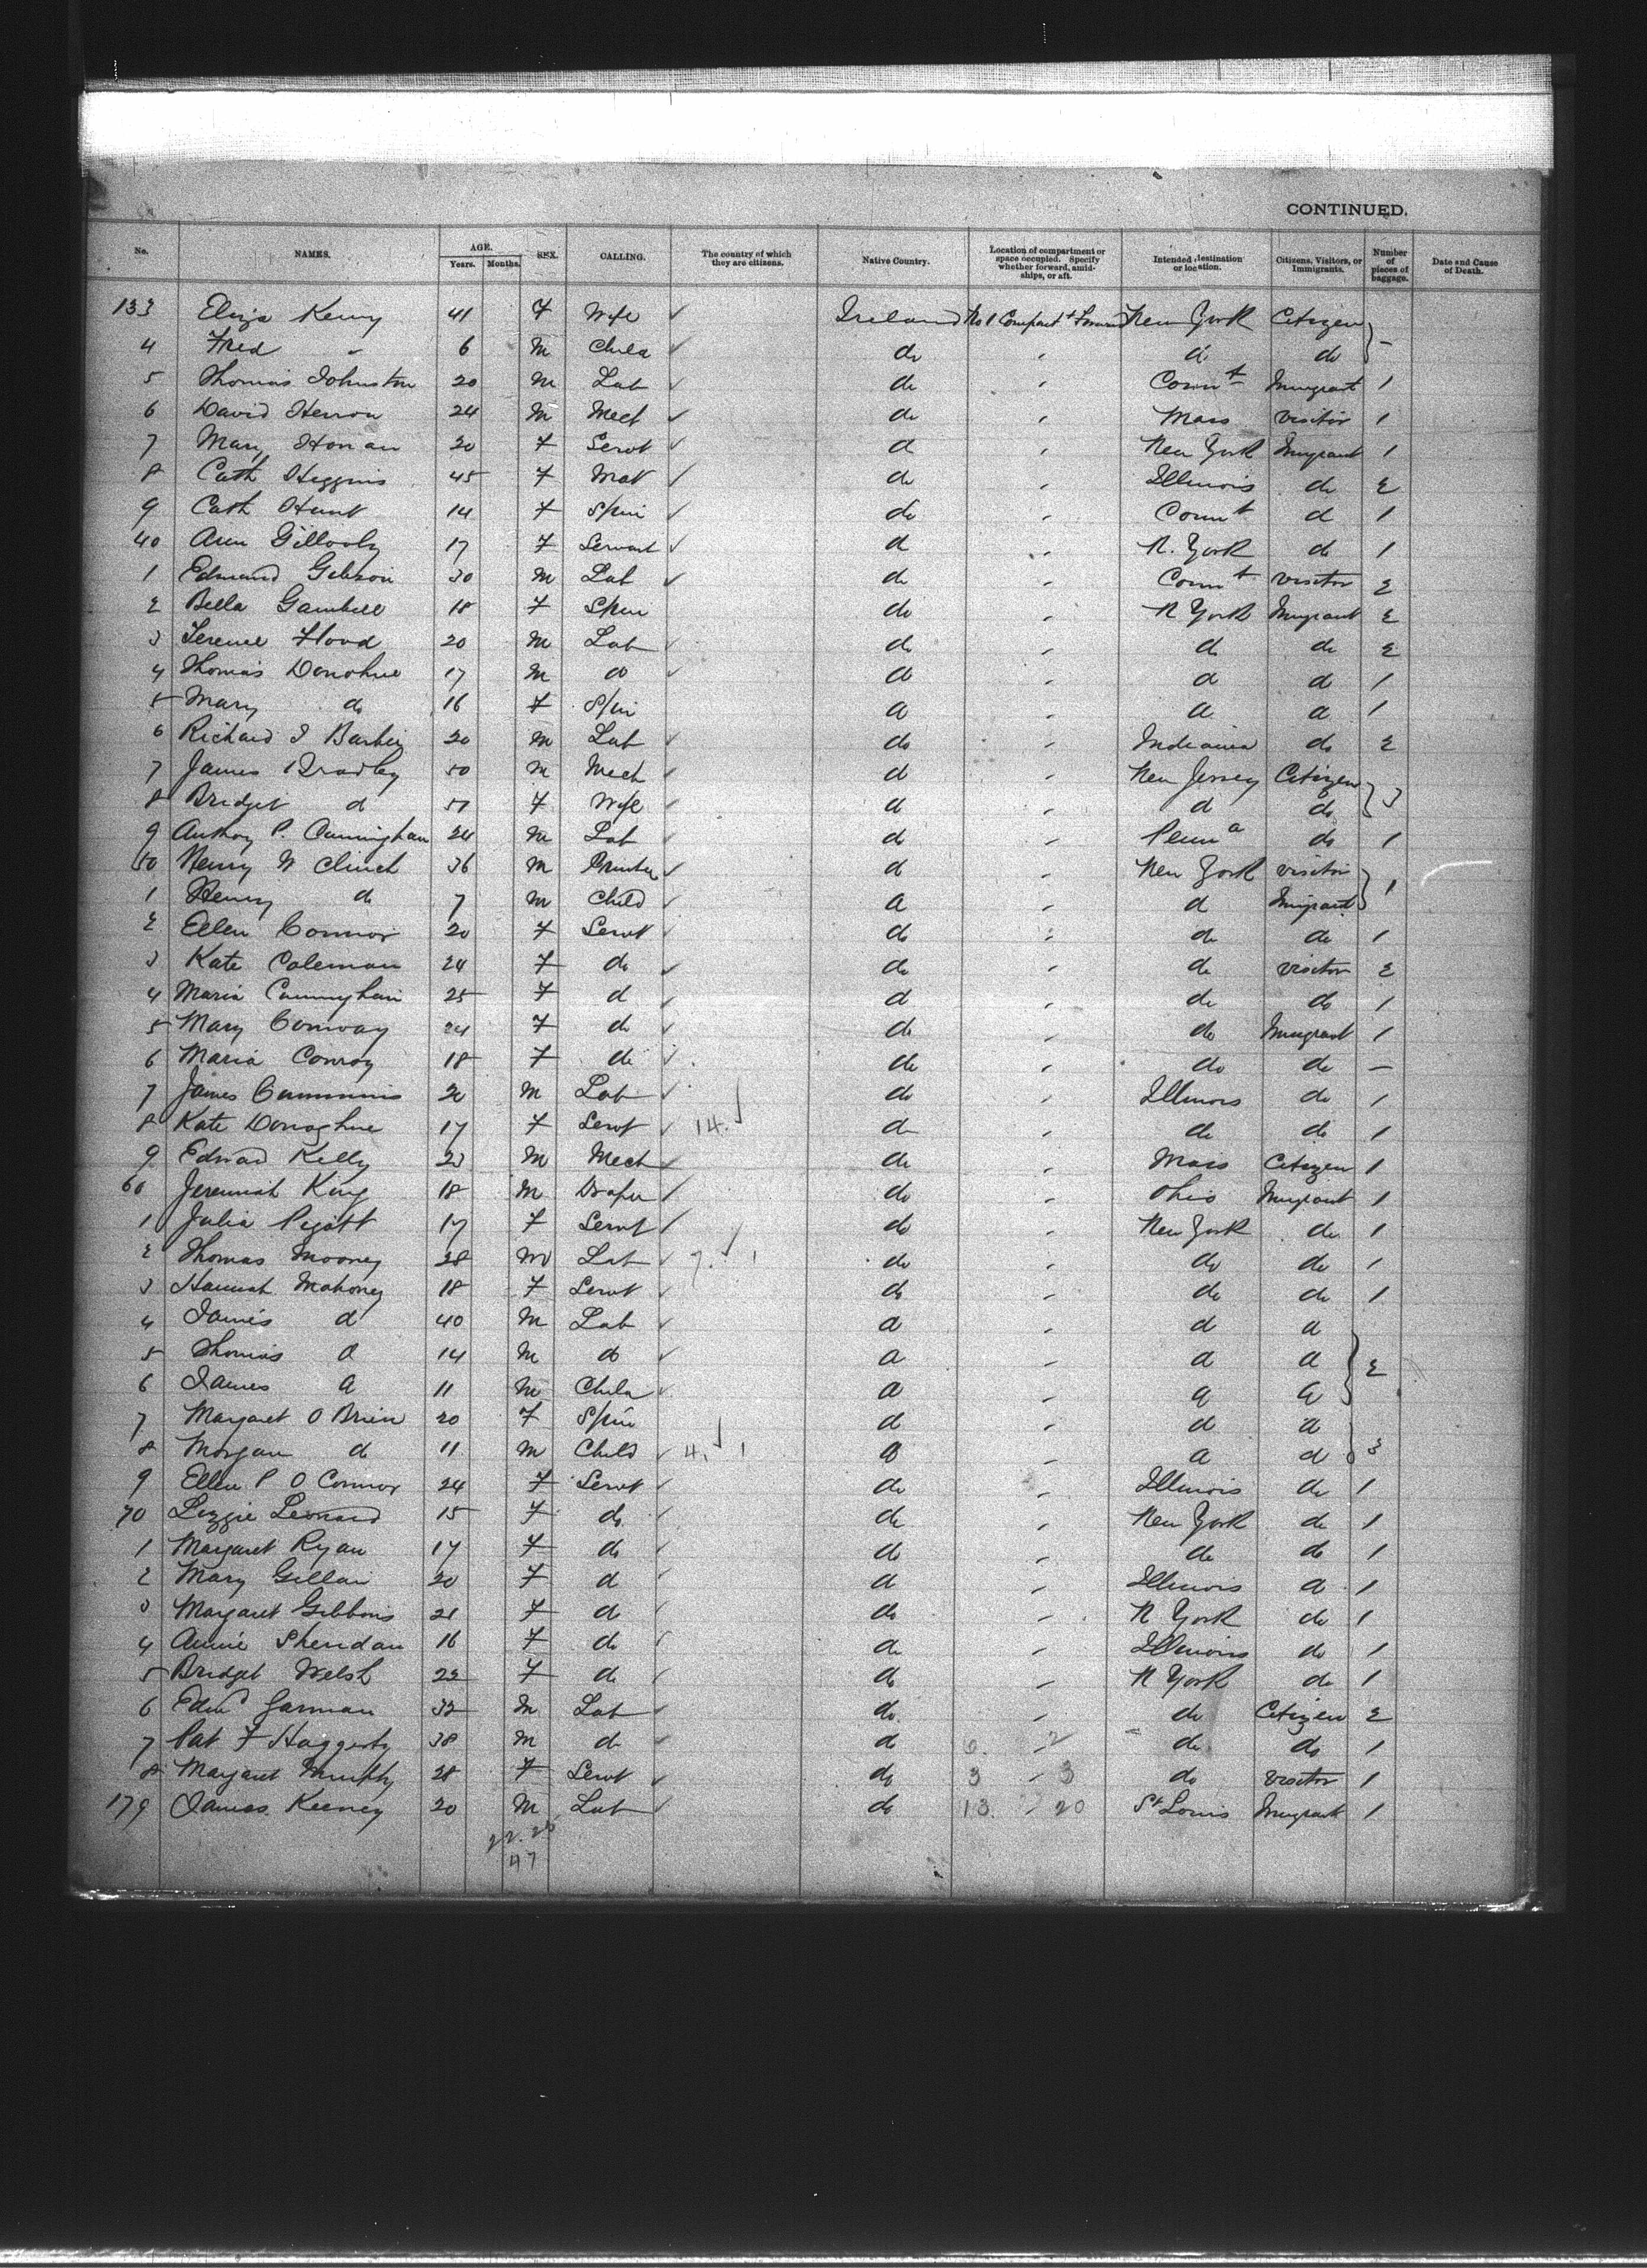 CONTINUED.
No. NAMES. AGE. Years. Months. SEX. CALLING. The country of which they are citizens. Native Country. Location of compartment or space occupied. Specify whether forward, amidships, or aft. Intended destination or location. Citizens, Visitors, or Immigrants. Number of pieces of baggage. Date and Cause of Death.
133 Eliza Kenny 41 F Wife ✓ Ireland No 1 Compart Forward New York Citizen
4 Fred " 6 M Child ✓ do " do do } –
5 Thomas Johnston 20 M Lab ✓ do " Connt Imigrant 1
6 David Herron 24 M Mech ✓ do " Mass visitor 1
7 Mary Honan 20 F Servt ✓ d " New York Imigrant 1
8 Cath Higgins 45 F Mat ✓ do " Illinois do 2
9 Cath Hunt 14 F Spin ✓ do " Connt d 1
40 Ann Gillooly 17 F Servant ✓ d " N. York do 1
1 Edmund Gibson 30 M Lab ✓ do Connt visitor 2
2 Bella Gambell 18 F Spin do " N York Imigrant 2
3 Terence Flood 20 M Lab ✓ do " d do 2
4 Thomas Donohue 17 M do ✓ d " d d 1
5 Mary do 16 F Spin d " d d 1
6 Richard J Barber 20 M Lab ✓ do " Indiana do 2
7 James Bradley 50 M Mech ✓ d " New Jersey Citizen
8 Bridget d 51 F Wife ✓ d " d do } 3
9 Anthony P. Cunningham 24 M Lab ✓ do " Penna do 1
50 Henry W Clinch 36 M Printer ✓ d " New York visitor
1 Henry do 7 M Child ✓ d " d Imigrant } 1
2 Ellen Connor 20 F Servt ✓ do " do do 1
3 Kate Coleman 24 F do ✓ do " do visitor 2
4 Maria Cunningham 25 F d ✓ d " do do 1
5 Mary Conway 24 F do ✓ do " do Imigrant 1
6 Maria Conroy 18 F do ✓ do " do do –
7 James Cummins 20 M Lab ✓ do " Illinois do 1
8 Kate Donoghue 17 F Servt ✓ 14. ✓ do " do do 1
9 Edward Kelly 23 M Mech ✓ do " Mass Citizen 1
60 Jeremiah King 18 M Draper ✓ do " Ohio Imigrant 1
1 Julia Pigott 17 F Servt ✓ do " New York do 1
2 Thomas Mooney 28 M Lab ✓ 7. ✓ 1 do " do do 1
3 Hannah Mahoney 18 F Servt ✓ do " do do 1
4 James d 40 M Lab ✓ d " d d
5 Thomas d 14 M do ✓ d " d d } 2
6 James d 11 M Child ✓ d " d d
7 Margaret O Brien 20 F Spin d " d d
8 Morgan d 11 M Child ✓ 4. ✓ 1 d " d d } 3
9 Ellen P O Connor 24 F Servt ✓ do " Illinois do 1
70 Lizzie Leonard 15 F do ✓ do " New York do 1
1 Margaret Ryan 17 F do ✓ do " do do 1
2 Mary Gillan 20 F d ✓ d " Illinois d 1
3 Margaret Gibbons 21 F do ✓ do " N York do 1
4 Annie Sheridan 16 F do ✓ do " Illinois do 1
5 Bridget Welsh 22 F do ✓ do " N York do 1
6 Edwd Garman 32 M Lab ✓ do " do Citizen 2
7 Pat F Haggerty 38 M do ✓ do 6. " 2 do do 1
8 Margaret Murphy 28 F Servt ✓ do 3 " 3 do visitor 1
179 James Keeney 20 M Lab ✓ do 13. " 20 St Louis Imigrant 1
22. 25
47